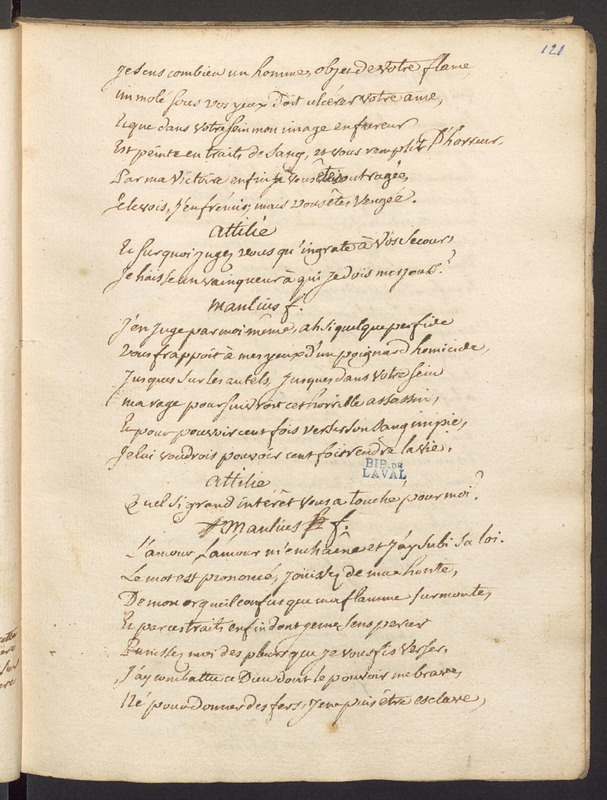 121
Je sens combien un homme, objet de votre flame
immolé sous vos yeux doit ulcérer votre ame,
Et que dans votre sein mon image en fureur
Est peinte en traits de sang, et vous remplit d'horreur.
Par ma victoire enfin je vous ai outragée,
Je le vois, j'en frémis, mais vous êtes vengée.
Attilie
Et sur quoi jugez vous qu'ingrate à vos secours
Je haïsse un vainqueur à qui je dois mes jours?
Manlius f.
J'en juge par moi même, ah si quelque perfide
vous frappoit à mes yeux d'un poignard homicide,
Jusques sur les autels, jusques dans votre sein
ma rage poursuivroit cet horrible assassin,
Et pour pouvoir cent fois verser son sang impie,
Je lui voudrois pouvoir cent fois rendre la vie.
BIB. DE
LAVAL
Attilie
Quel si grand intérêt vous a touché pour moi?
Manlius f.
L'amour, L'amour m'enchaîne et j'ay subi sa loi.
Le mot est prononcé, jouissez de ma honte,
De mon orgueil confus que ma flamme surmonte,
Et par ces traits enfin dont je me sens percer
Punissez moi des pleurs que je vous fis verser,
J'ay combattu ce Dieu dont le pouvoir me brave,
Né pour donner des fers, j'en puis être esclave,